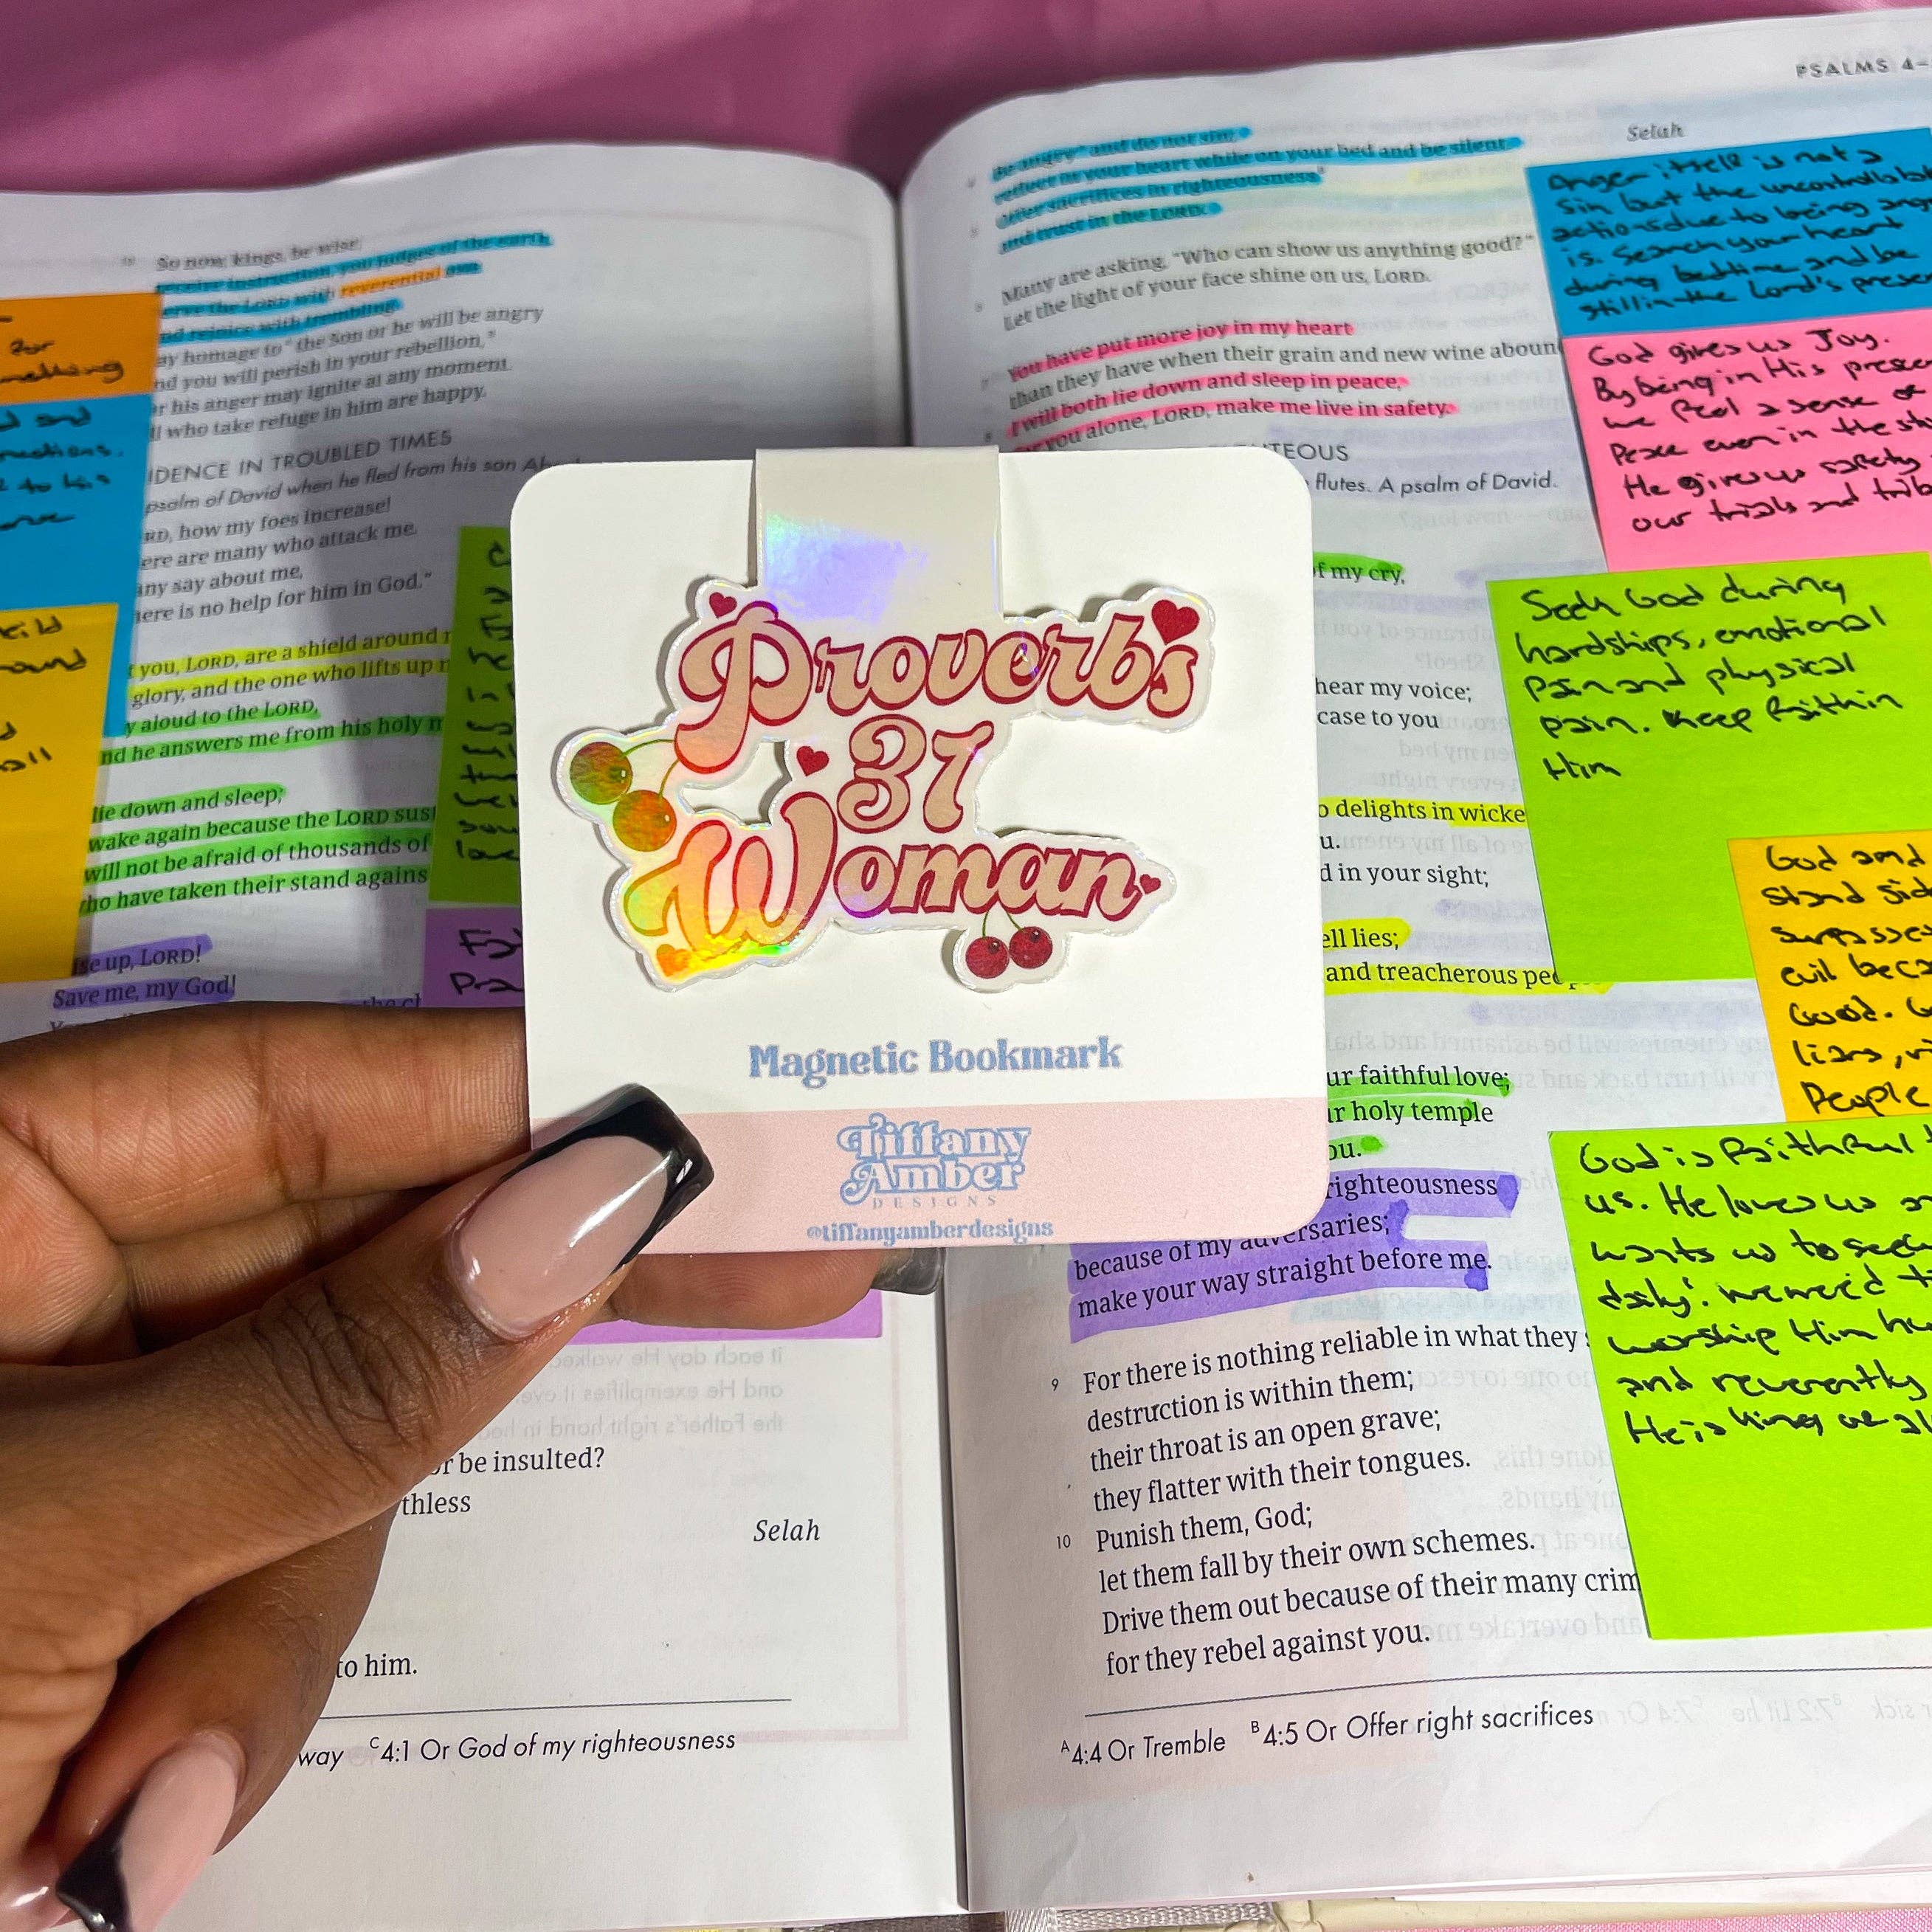 So now, kings, be wise;
receive instruction, you judges of the earth.
serve the LORD with reverential awe
and rejoice with trembling.
ay homage to the Son or he will be angry
nd you will perish in your rebellion,
r his anger may ignite at any moment.
ll who take refuge in him are happy.
IDENCE IN TROUBLED TIMES
psalm of David when he fled from his son Ab
RD, how my foes increase!
ere are many who attack me.
any say about me,
here is no help for him in God."
t you, LORD, are a shield around
glory, and the one who lifts up
y aloud to the LORD,
nd he answers me from his holy m
lie down and sleep;
wake again because the LORD sus
will not be afraid of thousands of
ho have taken their stand agains
se up, LORD!
Save me, my God!
or be insulted?
thless
Selah
to him.
way C4:1 Or God of my righteousness
for
mething
PSALMS 4–
Selah
Be angry and do not sin;
reflect in your heart while on your bed and be silent.
Offer sacrifices in righteousness
and trust in the LORD.
Many are asking, "Who can show us anything good?"
Let the light of your face shine on us, LORD.
You have put more joy in my heart
than they have when their grain and new wine aboun
I will both lie down and sleep in peace,
you alone, LORD, make me live in safety.
TEOUS
flutes. A psalm of David.
f my cry,
hear my voice;
case to you
o delights in wicke
u.
d in your sight;
ell lies;
and treacherous peo
ur faithful love;
r holy temple
ou.
righteousness
because of my adversaries;
make your way straight before me.
9 For there is nothing reliable in what they
destruction is within them;
their throat is an open grave;
they flatter with their tongues.
10 Punish them, God;
let them fall by their own schemes.
Drive them out because of their many crim
for they rebel against you.
A4:4 Or Tremble B4:5 Or Offer right sacrifices
Anger itself is not a
sin but the uncontrollab
actions due to being ang
is. Search your heart
during bedtime and be
still in the Lord's prese
God gives us Joy.
By being in His prese
we feel a sense of
Peace even in the st
He gives us safety
our trials and trib
Seek God during
hardships, emotional
pain and physical
pain. Keep faith in
Him
God and
stand sid
surpasses
evil beca
Good.
liars,
People
God is faithful t
us. He loves us
wants us to seek
daily.
worship Him
and reverently
He is King
Proverbs
31
Woman
Magnetic Bookmark
Tiffany
Amber
DESIGNS
@tiffanyamberdesigns